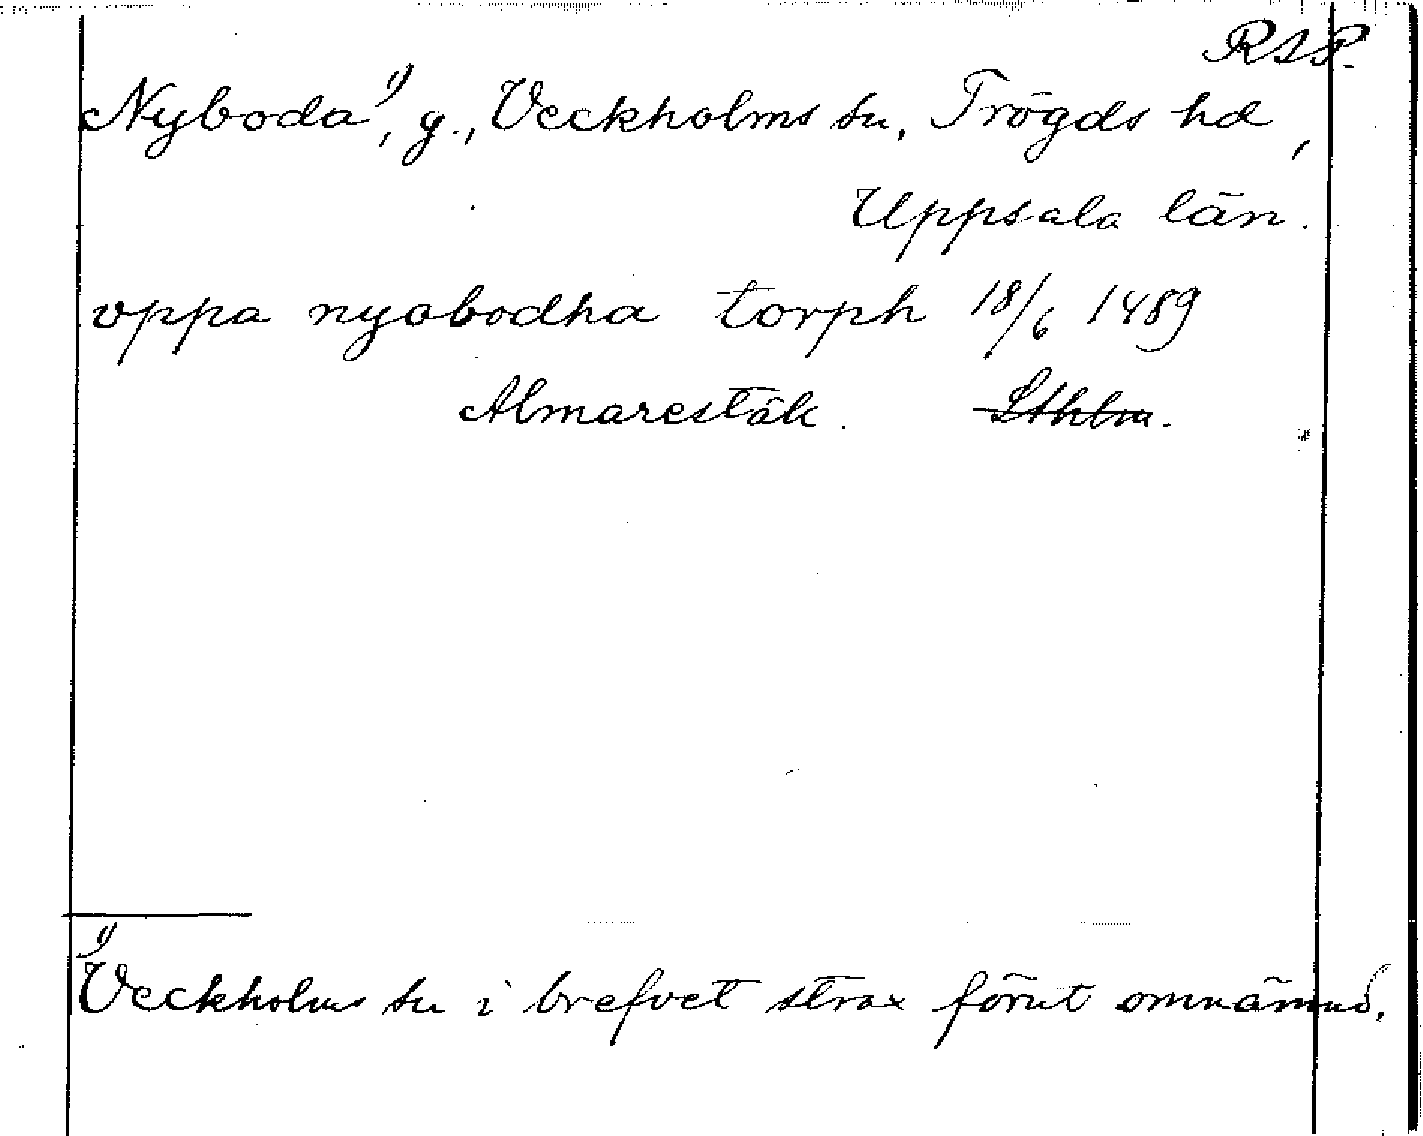 RAP.
Nyboda¹⁾, g., Veckholms sn, Trögds hd,
Uppsala län.
vppa nyabodha torph 18/6 1489
Almarestäk. Sthlm.
¹⁾
Veckholms sn i brefvet strax förut omnämnd.